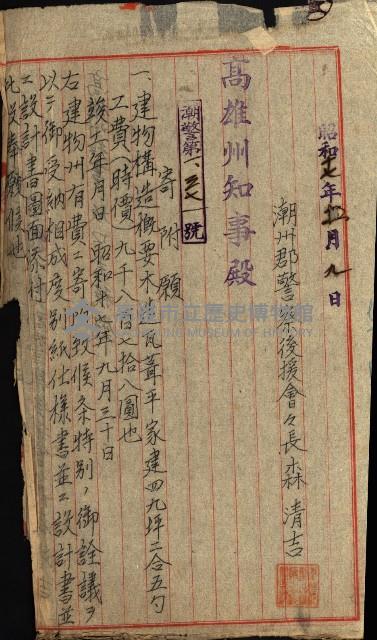 昭和十七年十二月九日
潮州郡警察後援會々長森清吉
高雄州知事殿
潮警第一、三七號
寄附願
一、建物構造概要木造瓦葺平家建四九坪二合五勺
工費(時價)九千八百七拾八圓也
竣工年月日 昭和十七年九月三十日
右建物州有費ニ寄附致候条特別ノ御詮議ヲ
以テ御受納相成度別紙仕様書並ニ設計書並
ニ設計書圖面添付
此段奉願候也
高雄市立歷史博物館
KAOHSIUNG MUSEUM OF HISTORY